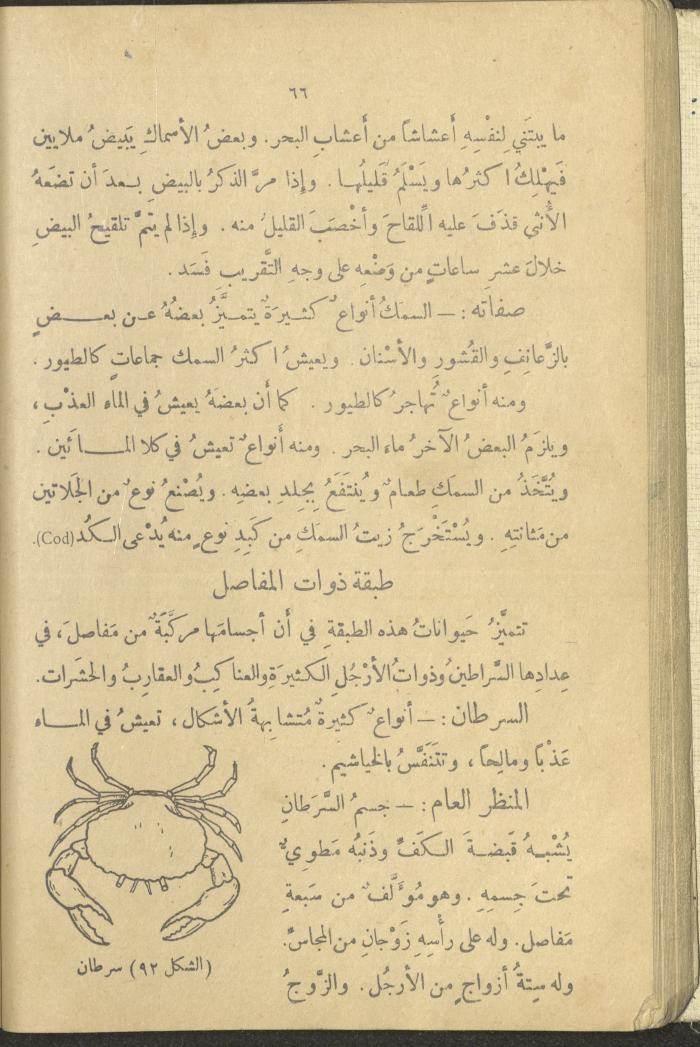 ٦٦
ما يبتَني لِنفْسِهِ أَعشاشاً من أَعشابِ البحر. وبعضُ الأسماكِ يَبيضُ ملايين
فَيهْلِكُ اكثرُها ويَسْلَمُ قَليلُها. وإذا مرَّ الذكرُ بالبيضِ بعدَ أن تضَعَهُ
الأُنثى قذَفَ عليه اللِّقاحَ وأَخْصَبَ القليلُ منه. وإذا لم يتمَّ تلقيحُ البيضِ
خلالَ عشرِ ساعاتٍ من وَضْعِهِ على وجهِ التَّقريبِ فَسَد.
صفاته: — السمكُ أنواعٌ كثيرَةٌ يتميَّزُ بعضُهُ عن بعضٍ
بالزَّعانِفِ والقُشورِ والأسْنان. ويعيشُ اكثرُ السمك جماعاتٍ كالطيور.
ومنه أنواعٌ تُهاجرُ كالطيور. كما أن بعضَهُ يعيشُ في الماء العذْبِ،
ويلزَمُ البعضُ الآخرُ ماء البحر. ومنه أنواعٌ تعيشُ في كلا المائَين.
ويُتَّخَذُ من السمَكِ طعامٌ ويُنتَفَعُ بِجِلدِ بعضِهِ. ويُصْنعُ نوعٌ من الجَلاتين
من مَثانتِهِ. ويُسْتَخْرَجُ زيتُ السمَكِ من كَبِدِ نوعٍ منه يُدْعى الكُد (Cod).
طبقة ذوات المفاصل
تتميَّزُ حَيواناتُ هذه الطبقةِ في أن أجسامَها مركَّبَةٌ من مَفاصلَ، في
عِدادِها السَّراطينُ وذواتُ الأرْجُلِ الكثيرَةِ والعناكِبُ والعقارِبُ والحشَرات.
السرطان: — أنواعٌ كثيرةٌ مُتشابِهةُ الأشكال، تعيشُ في الماء
عَذْباً ومالِحاً، وتتَنَفَّسُ بالخياشيم.
المنظر العام: — جسمُ السَّرَطانِ
يُشْبِهُ قَبضةَ الكَفِّ وذَنبُه مَطوِيٌّ
تحتَ جِسمِهِ. وهو مُؤَلَّفٌ من سَبعةِ
مَفاصل. وله على رأْسِهِ زَوْجانِ من المجاسِّ.
وله ستةُ أزواجٍ من الأرجُل. والزَّوجُ
(الشكل ٩٢) سرطان